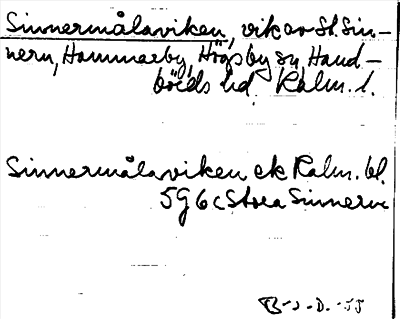 Sinnermålaviken, vik av St. Sin-
nern, Hammarby, Högsby sn, Hand-
börds hd. Kalm. l.
Sinnermålaviken ek Kalm. bl.
5G 6c Stora Sinnern